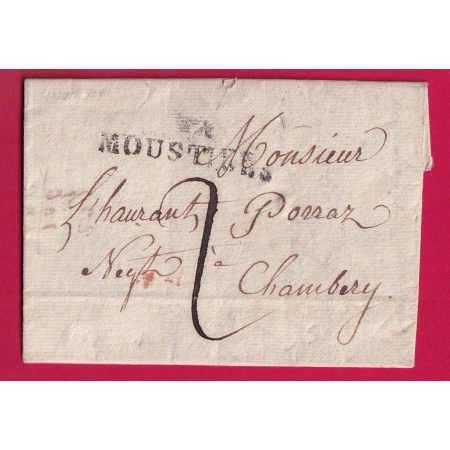 MOUSTIERS
Monsieur
Lhaurant Porraz
Negt à
Chambery
2